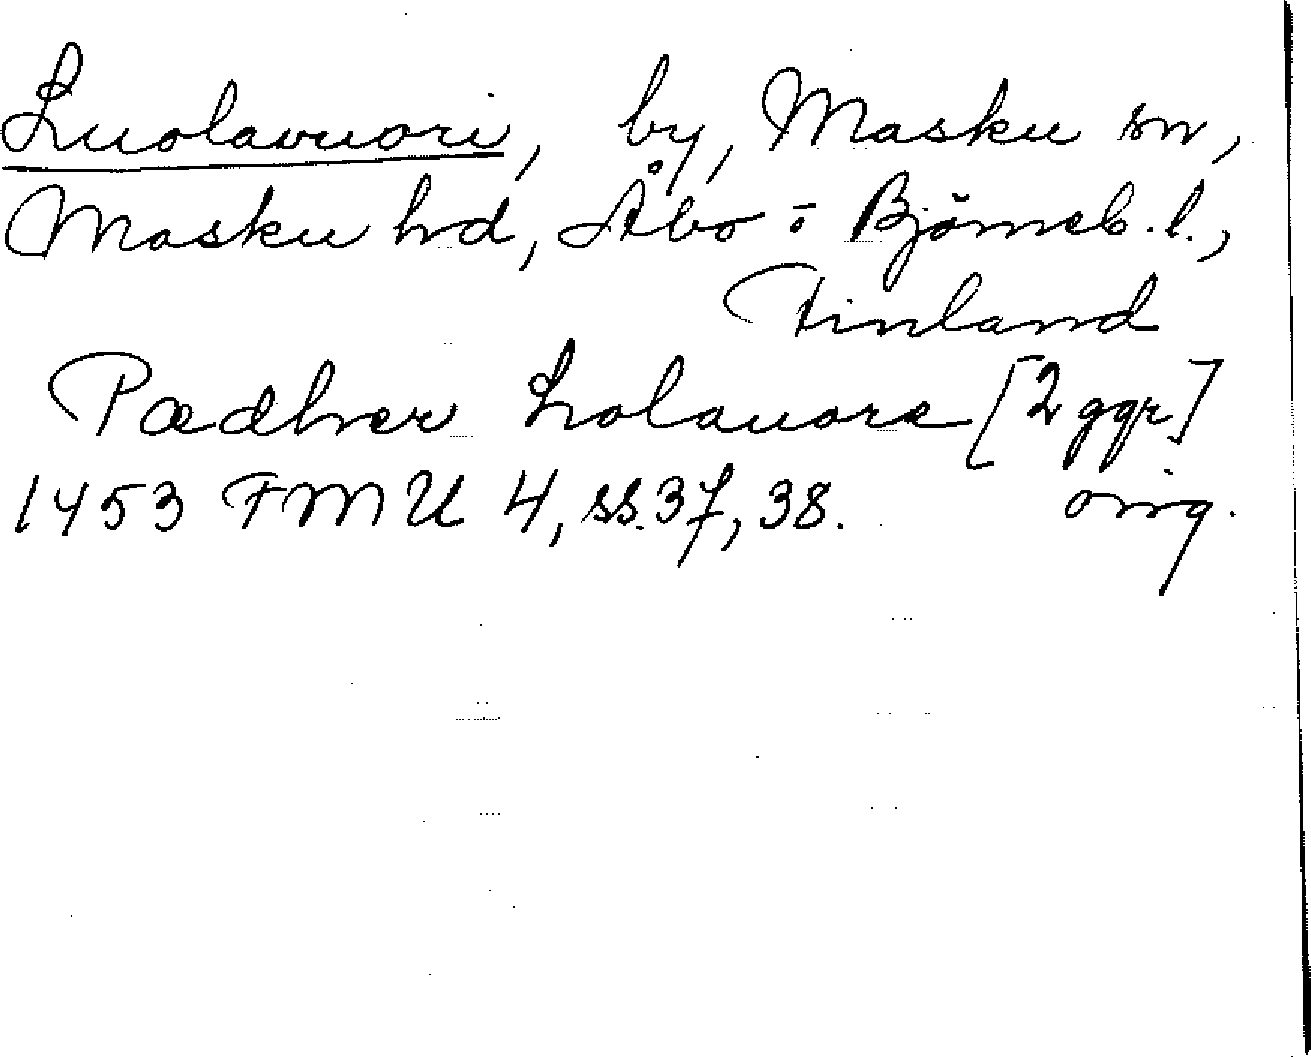 Luolavuori, by, Masku sn,
Masku hd, Åbo o Björneb. l.,
Finland
Pædher Lolauore [2 ggr]
1453 FMU 4, ss. 37, 38. orig.